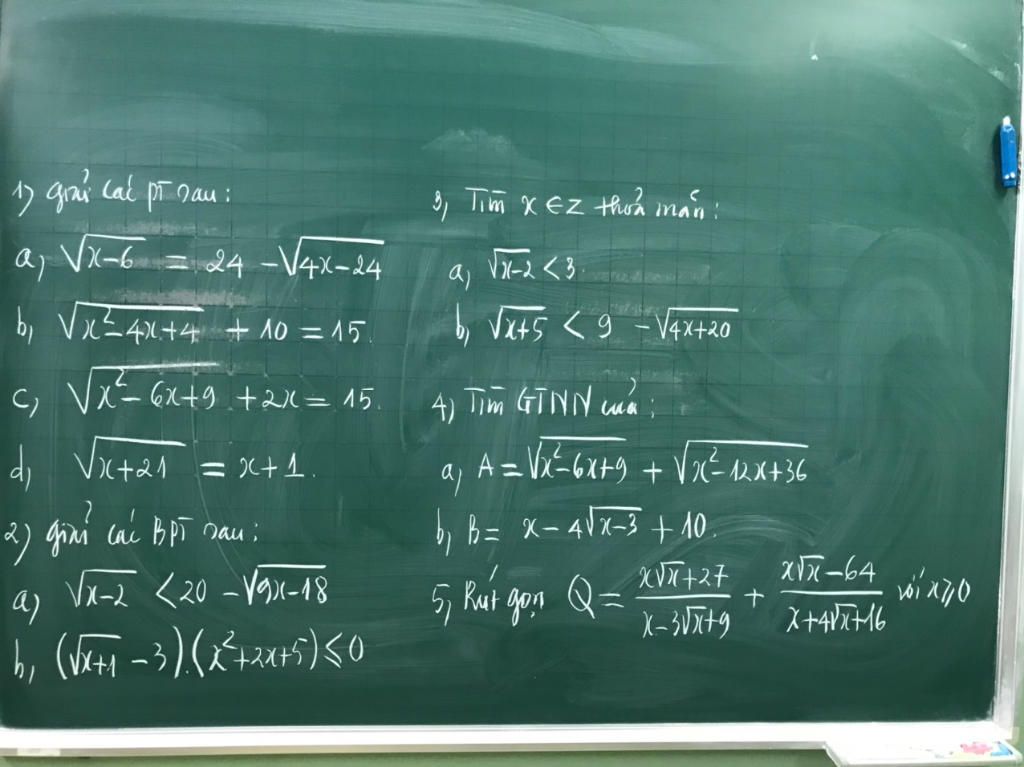 1) giải các PT sau:
a, √(x-6) = 24 - √(4x-24)
b, √(x²-4x+4) + 10 = 15.
c, √(x²-6x+9) + 2x = 15.
d, √(x+21) = x+1.
2) giải các BPT sau:
a, √(x-2) < 20 - √(9x-18)
b, (√(x+1) - 3).(x²+2x+5) ≤ 0
3, Tìm x ∈ Z thoả mãn:
a, √(x-2) < 3.
b, √(x+5) < 9 - √(4x+20)
4, Tìm GTNN của:
a, A = √(x²-6x+9) + √(x²-12x+36)
b, B = x - 4√(x-3) + 10.
5, Rút gọn Q = (x√x+27)/(x-3√x+9) + (x√x-64)/(x+4√x+16) với x≥0